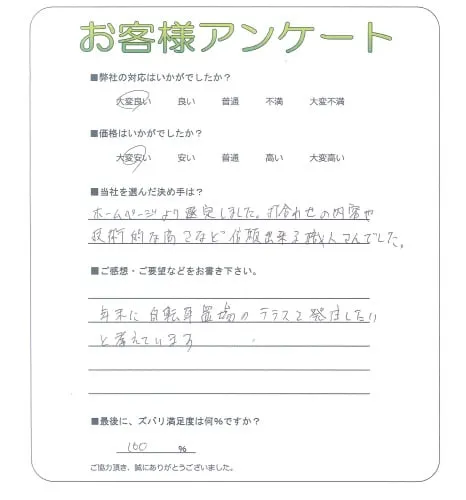 お客様アンケート
■弊社の対応はいかがでしたか?
大変良い 良い 普通 不満 大変不満
■価格はいかがでしたか?
大変安い 安い 普通 高い 大変高い
■当社を選んだ決め手は?
ホームページより選定しました。打合わせの内容や
技術的な高さなど信頼出来る職人さんでした。
■ご感想・ご要望などをお書き下さい。
年末に自転車置場のテラスを発注したい
と考えています
■最後に、ズバリ満足度は何%ですか?
100 %
ご協力頂き、誠にありがとうございました。